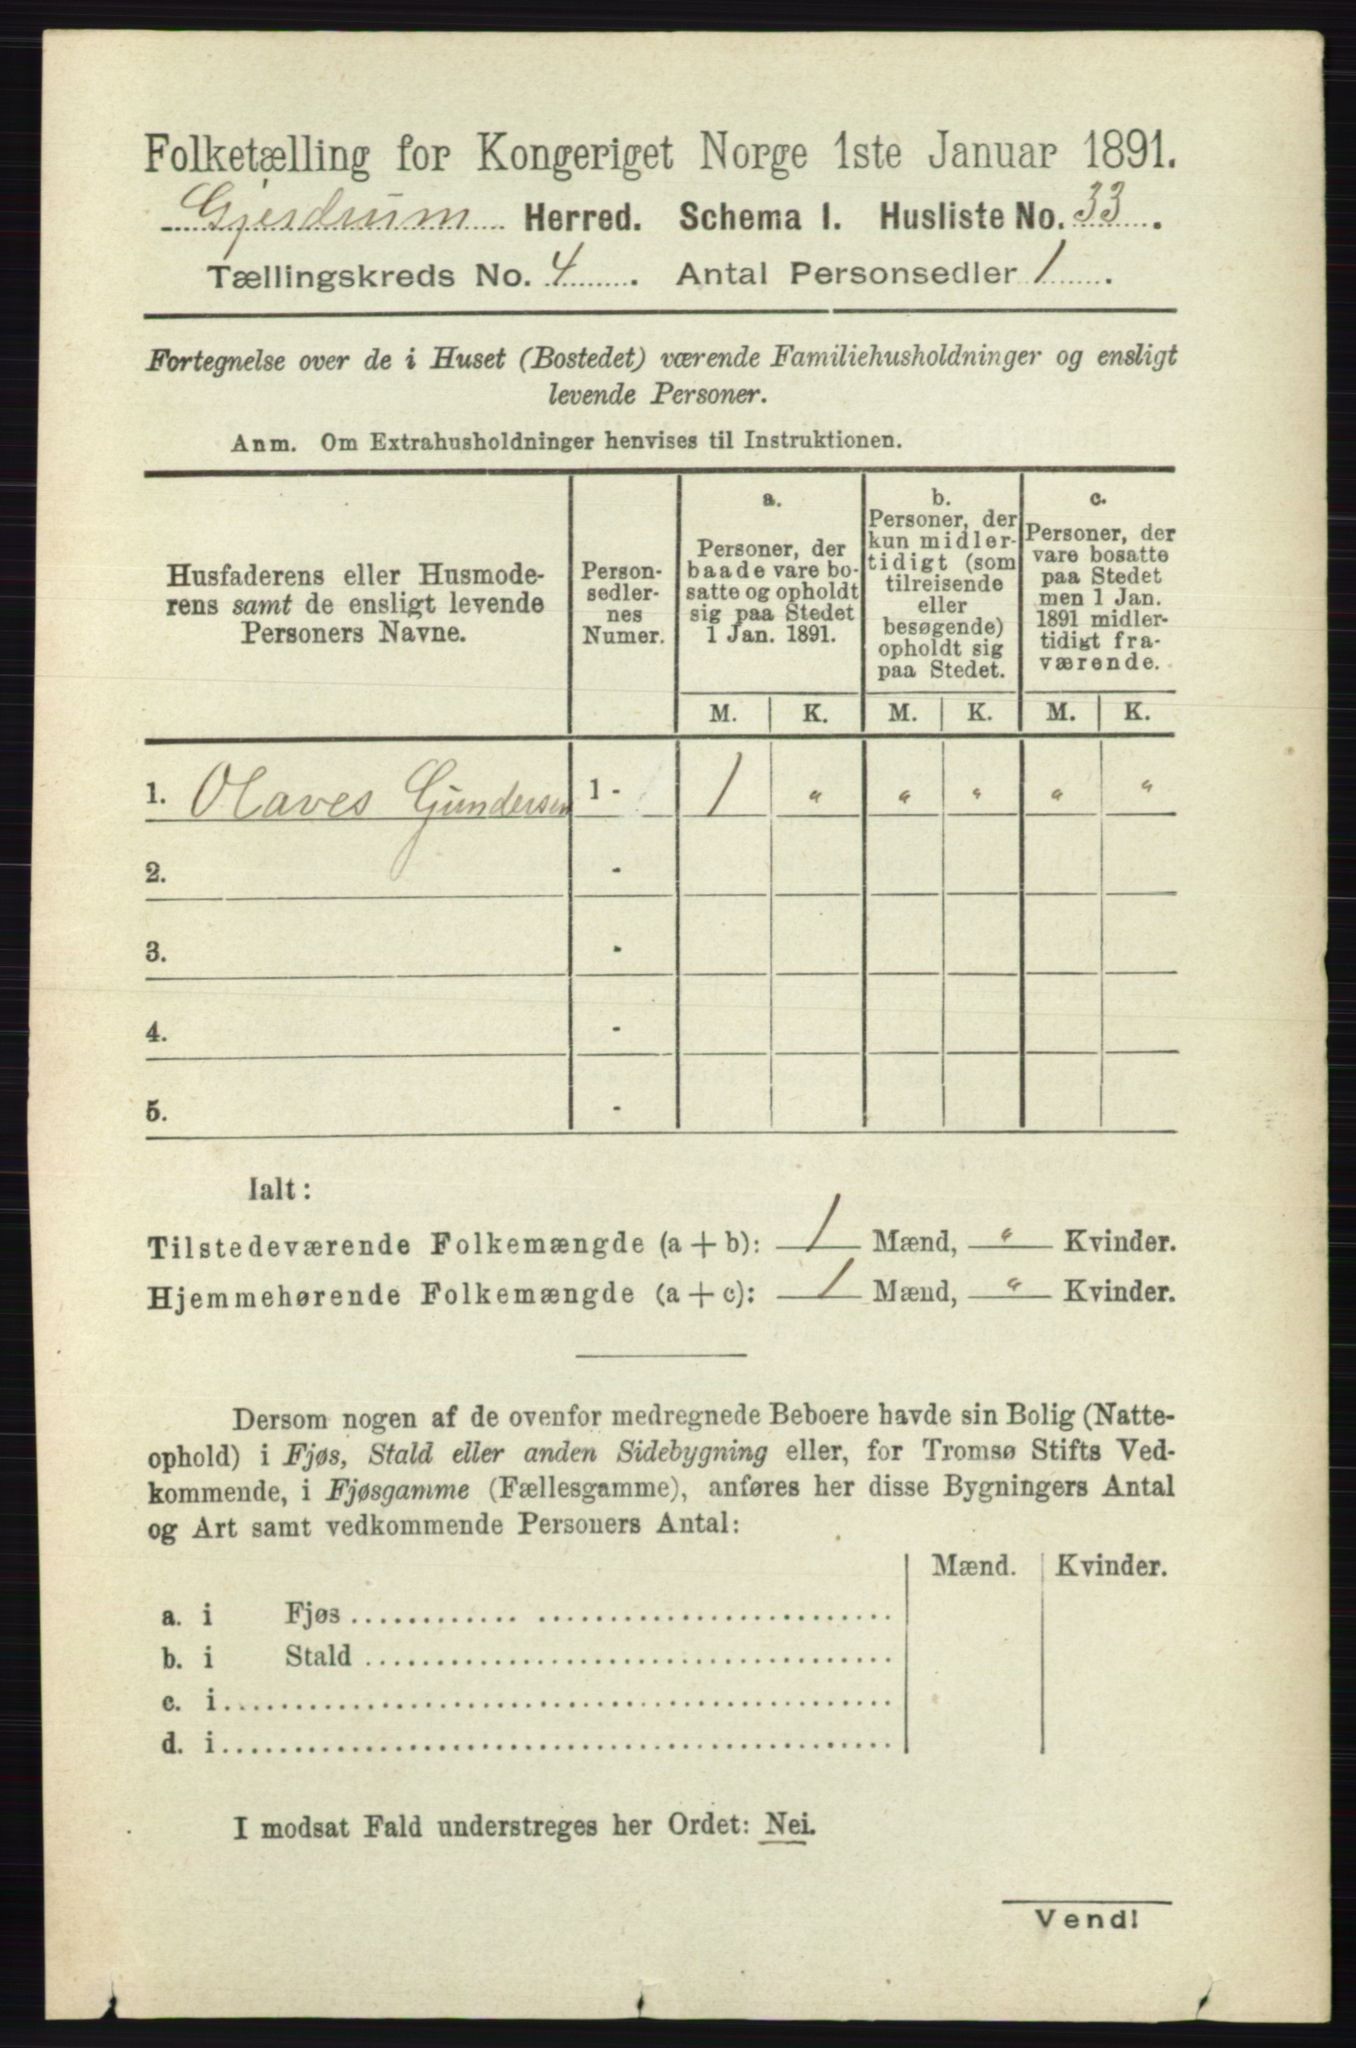 Folketælling for Kongeriget Norge 1ste Januar 1891.
Gjerdrum Herred. Schema I. Husliste No. 33.
Tællingskreds No. 4. Antal Personsedler 1.
Fortegnelse over de i Huset (Bostedet) værende Familiehusholdninger og ensligt
levende Personer.
Anm. Om Extrahusholdninger henvises til Instruktionen.
Husfaderens eller Husmode-
rens samt de ensligt levende
Personers Navne.
Person-
sedler-
nes
Numer.
a.
Personer, der
baade vare bo-
satte og opholdt
sig paa Stedet
1 Jan. 1891.
b.
Personer, der
kun midler-
tidigt (som
tilreisende
eller
besøgende)
opholdt sig
paa Stedet.
c.
Personer, der
vare bosatte
paa Stedet
men 1 Jan.
1891 midler-
tidigt fra-
værende.
M. K. M. K. M. K.
1. Olaves Gundersen 1 - 1 " " " " "
2. -
3. -
4. -
5. -
Ialt:
Tilstedeværende Folkemængde (a + b): 1 Mænd, " Kvinder.
Hjemmehørende Folkemængde (a + c): 1 Mænd, " Kvinder.
Dersom nogen af de ovenfor medregnede Beboere havde sin Bolig (Natte-
ophold) i Fjøs, Stald eller anden Sidebygning eller, for Tromsø Stifts Ved-
kommende, i Fjøsgamme (Fællesgamme), anføres her disse Bygningers Antal
og Art samt vedkommende Personers Antal:
Mænd. Kvinder.
a. i Fjøs
b. i Stald
c. i
d. i
I modsat Fald understreges her Ordet: Nei.
Vend!